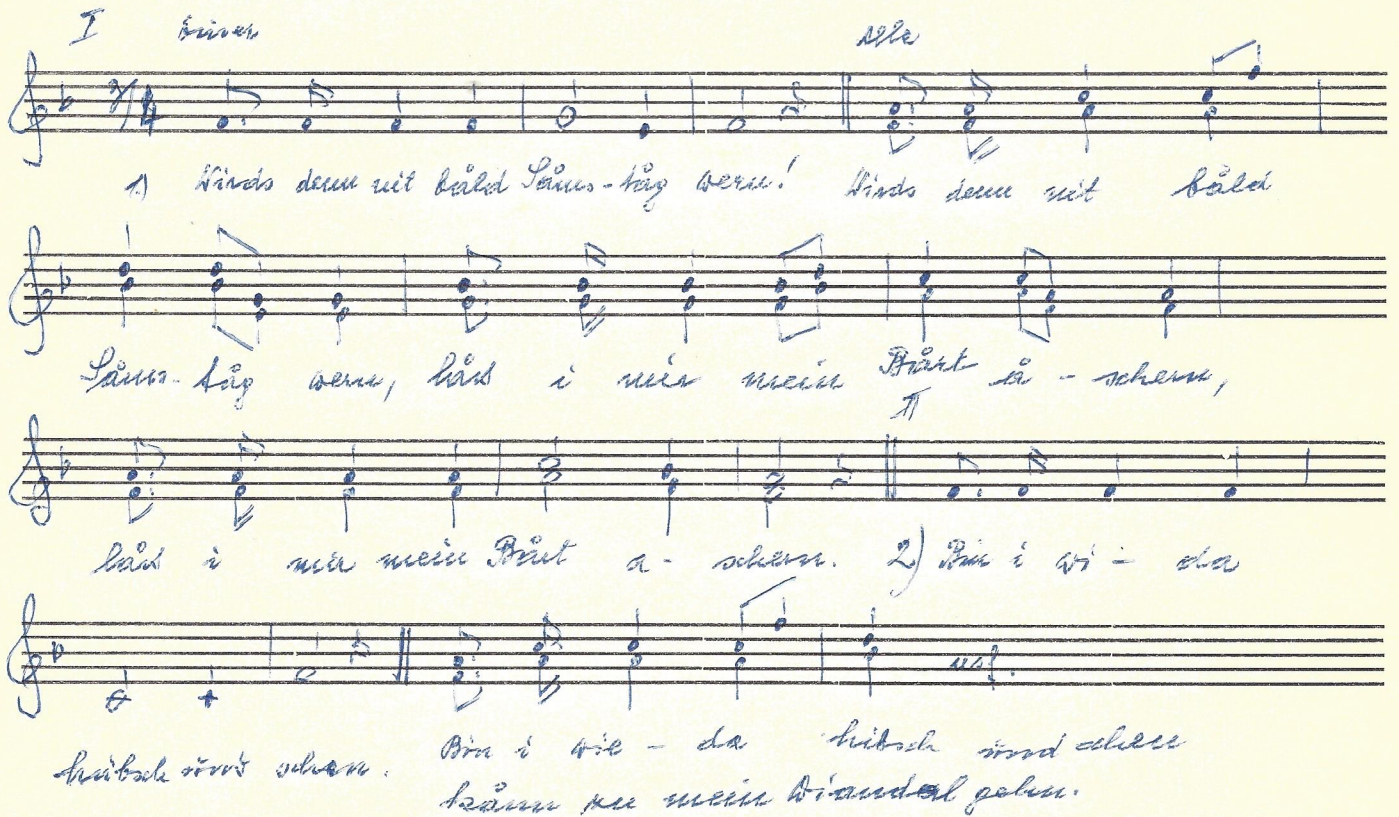 I Einer Alle
3/4
1) Wirds denn nit båld Såms-tåg wern! Wirds denn nit båld
Såms-tåg wern, låss i mir mein Bårt å-schern,
II
låss i mir mein Bårt a-schern. 2) Bin i wi-da
hübsch und schen. Bin i wie-da hibsch und schen
usf.
kånn zu mein Diandal gehn.